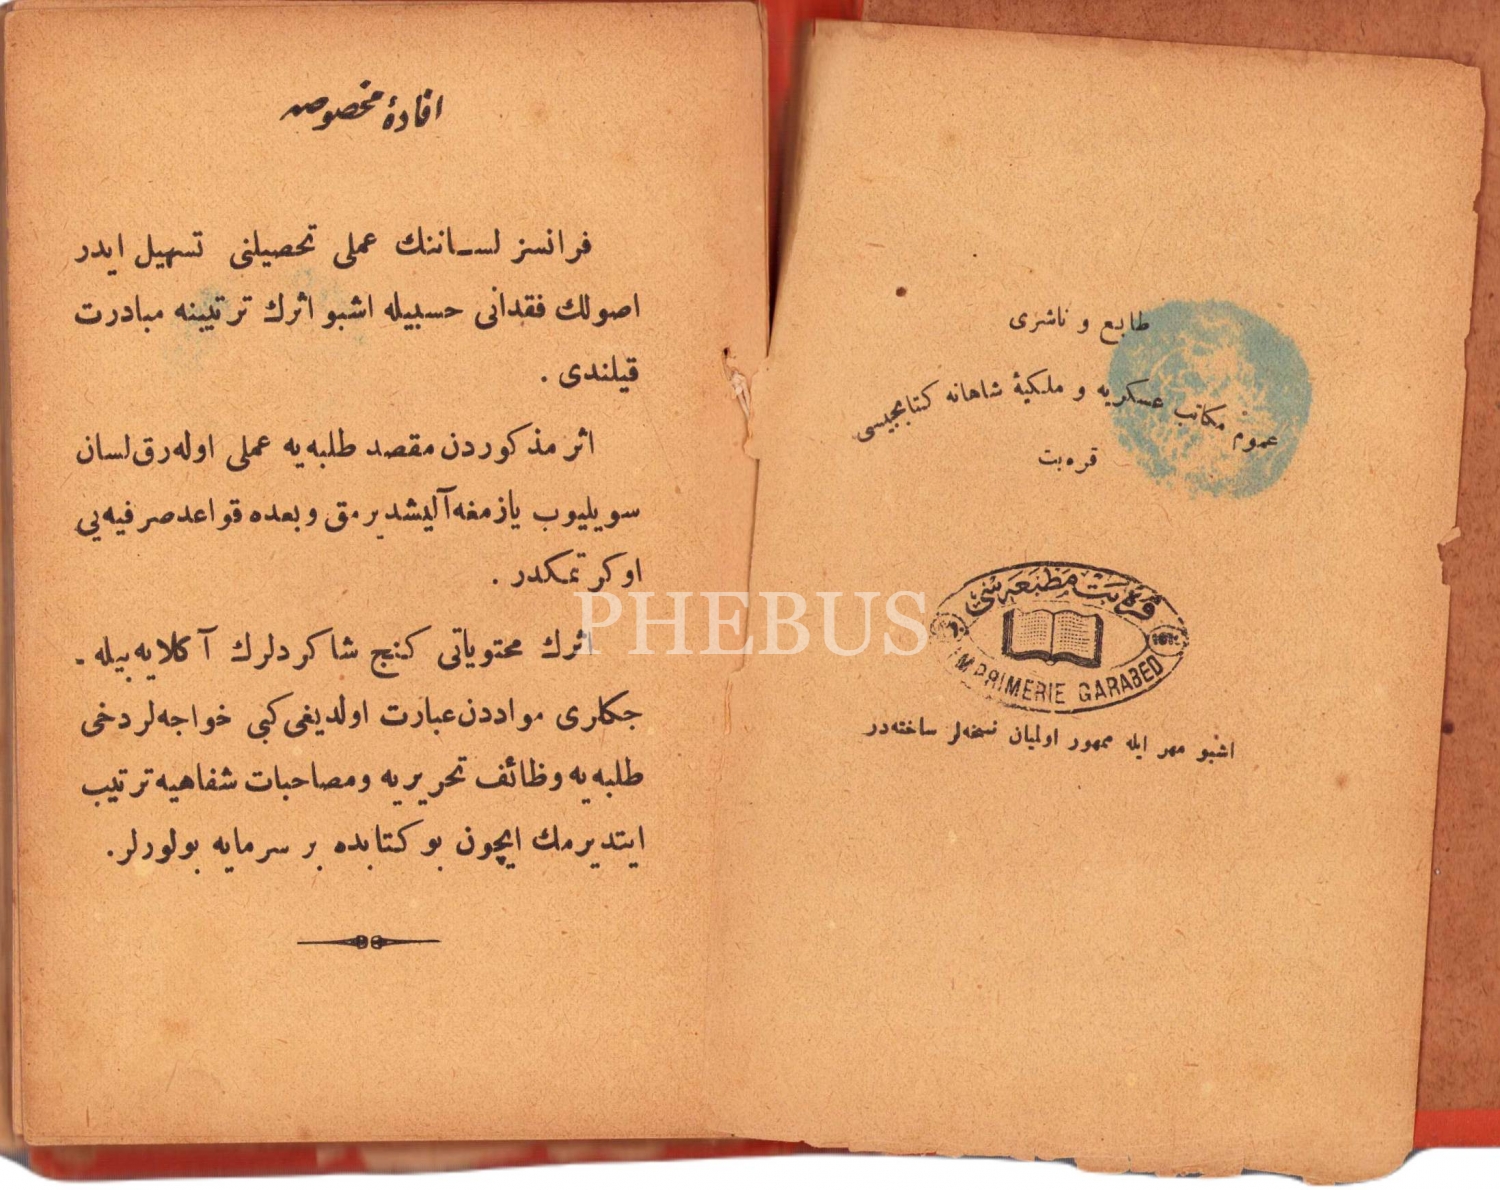 طابع و ناشری
عموم مكاتب عسكریه و ملكیۀ شاهانه كتابجیسی
قره بت
قره بت مطبعه سی
IMPRIMERIE GARABED
اشبو مهر ایله ممهور اولمیان نسخه لر ساخته در
افادۀ مخصوصه
فرانسز لســاننك عملی تحصیلنی تسهیل ایدر
اصولك فقدانی حسبیله اشبو اثرك ترتیبنه مبادرت
قیلندی .
اثر مذكوردن مقصد طلبه یه عملی اوله رق لسان
سویلیوب یازمغه آلیشدیرمق و بعده قواعد صرفیه یی
اوكرتمكدر .
اثرك محتویاتی كنج شاكردلرك آكلایه بیله -
جكلری مواددن عبارت اولدیغی كبی خواجه لر دخی
طلبه یه وظائف تحریریه و مصاحبات شفاهیه ترتیب
ایتدیرمك ایچون بو كتابده بر سرمایه بولورلر.
PHEBUS